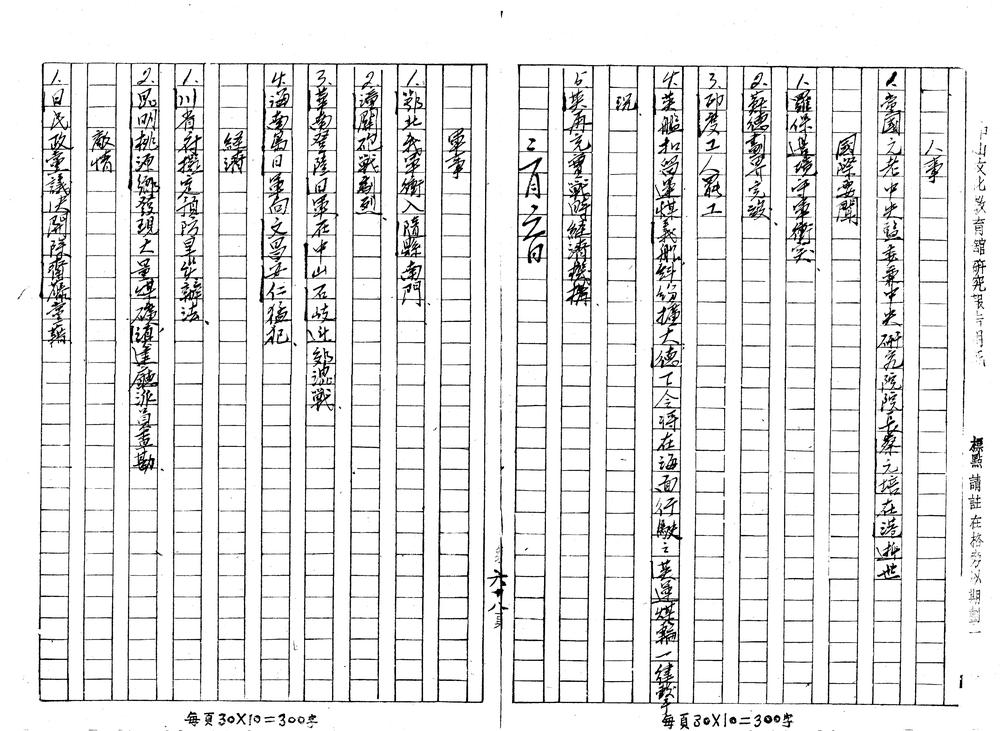 中山文化教育館研究報告用紙
標點請註在格旁以期劃一
人事
1.黨國元老中央監委兼中央研究院院長蔡元培在港逝世
國際要聞
1.羅保邊境守軍衝突
2.蘇德劃界完竣
3.印度工人罷工
4.英艦扣留運煤義船糾紛擴大德下令將在海面行駛之英運煤輪一律擊
沉
5.英再充實戰時經濟機構
三月六日
第六十八頁
軍事
1.鄂北我軍衝入隨縣南門
2.潼關砲戰劇烈
3.華南登陸日軍在中山石岐近郊混戰
4.海南島日軍向文昌安仁猛犯
經濟
1.川省府擬定預防旱災辦法
2.昆明桃源鄉發現大量煤礦滇建廳派員查勘
敵情
1.日民政黨議決開除齋藤黨籍
每頁30X10=300字
每頁30X10=300字